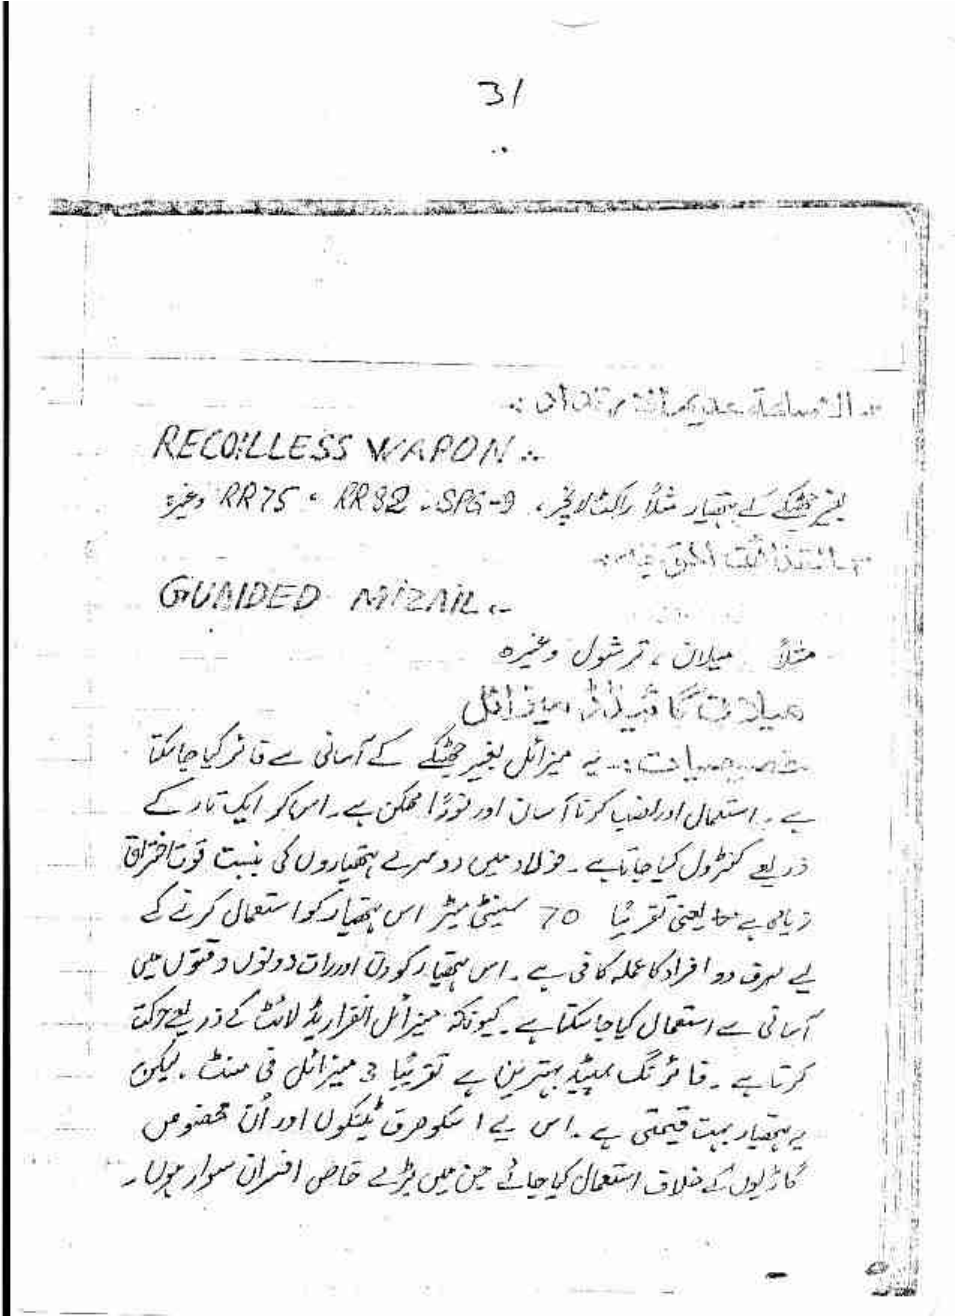 31
RECOILLESS WAPON :-
بغیر جھٹکے کے ہتھیار مثلاً راکٹ لانچر، RR75 ، RR82 ، SPG-9 وغیرہ
GUAIDED MIZAIL :-
مثلاً میلان ، ترشول وغیرہ
میلان گائیڈڈ میزائل
خصوصیات :۔ یہ میزائل بغیر جھٹکے کے آسانی سے فائر کیا جا سکتا
ہے ۔ استعمال اور نصب کرنا آسان اور فوراً ممکن ہے ۔ اس کو ایک تار کے
ذریعے کنٹرول کیا جاتا ہے ۔ فولاد میں دوسرے ہتھیاروں کی بنسبت قوت اختراق
زیادہ ہے یعنی تقریباً 70 سینٹی میٹر اس ہتھیار کو استعمال کرنے کے
لیے صرف دو افراد کا عملہ کافی ہے ۔ اس ہتھیار کو دن اور رات دونوں وقتوں میں
آسانی سے استعمال کیا جا سکتا ہے ۔ کیونکہ میزائل انفراریڈ لائٹ کے ذریعے حرکت
کرتا ہے ۔ فائرنگ سپیڈ بہترین ہے تقریباً 3 میزائل فی منٹ ۔ لیکن
یہ ہتھیار بہت قیمتی ہے ۔ اس لیے اسکو صرف ٹینکوں اور اُن مخصوص
گاڑیوں کے خلاف استعمال کیا جائے جن میں بڑے خاص افسران سوار ہوں ۔